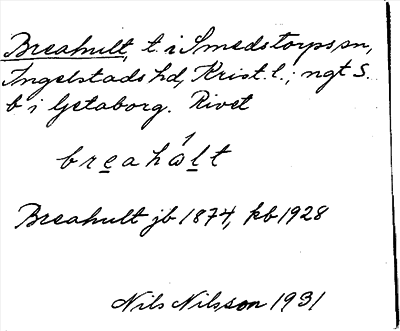 Breahult, t. i Smedstorps sn,
Ingelstads hd, Krist. l.; ngt S.
b i Getaborg. Rivet
breahω̍lt
Breahult jb 1874, kb 1928
Nils Nilsson 1931